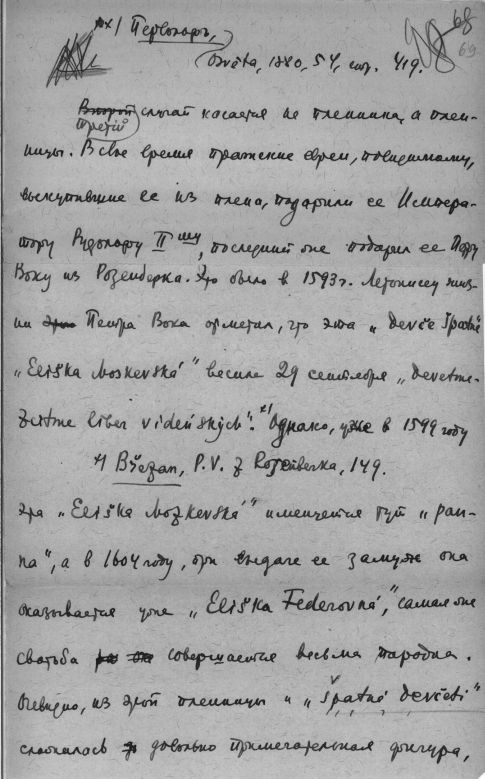 *) Первольф,
68
69
Osvěta, 1880, 54, стр. 419.
Второй случай касается не пленника, а плен-
третий
ницы. В свое время пражские евреи, повидимому,
выкупившие ее из плена, подарили ее Импера-
тору Рудольфу II му, последний же подарил ее Петру
Воку из Розенберка. Это было в 1593 г. Летописец жиз-
ни Петра Вока отметил, что эта „děvče špatné
„Eliška Moskevská" весила 29 сентября „devetme-
zcitme liber vídeňských". *) Однако, уже в 1599 году
*) Břežan, P. V. z Rosenberka, 149.
эта „Eliška Mozkevská" именуется тут „pan-
na", а в 1604 году, при выдаче ее замуж она
оказывается уже „Eliška Federovná", самая же
свадьба совершается весьма парадна.
Очевидно, из этой пленницы и „špatné děvčeti"
сложилось довольно примечательная фигура,